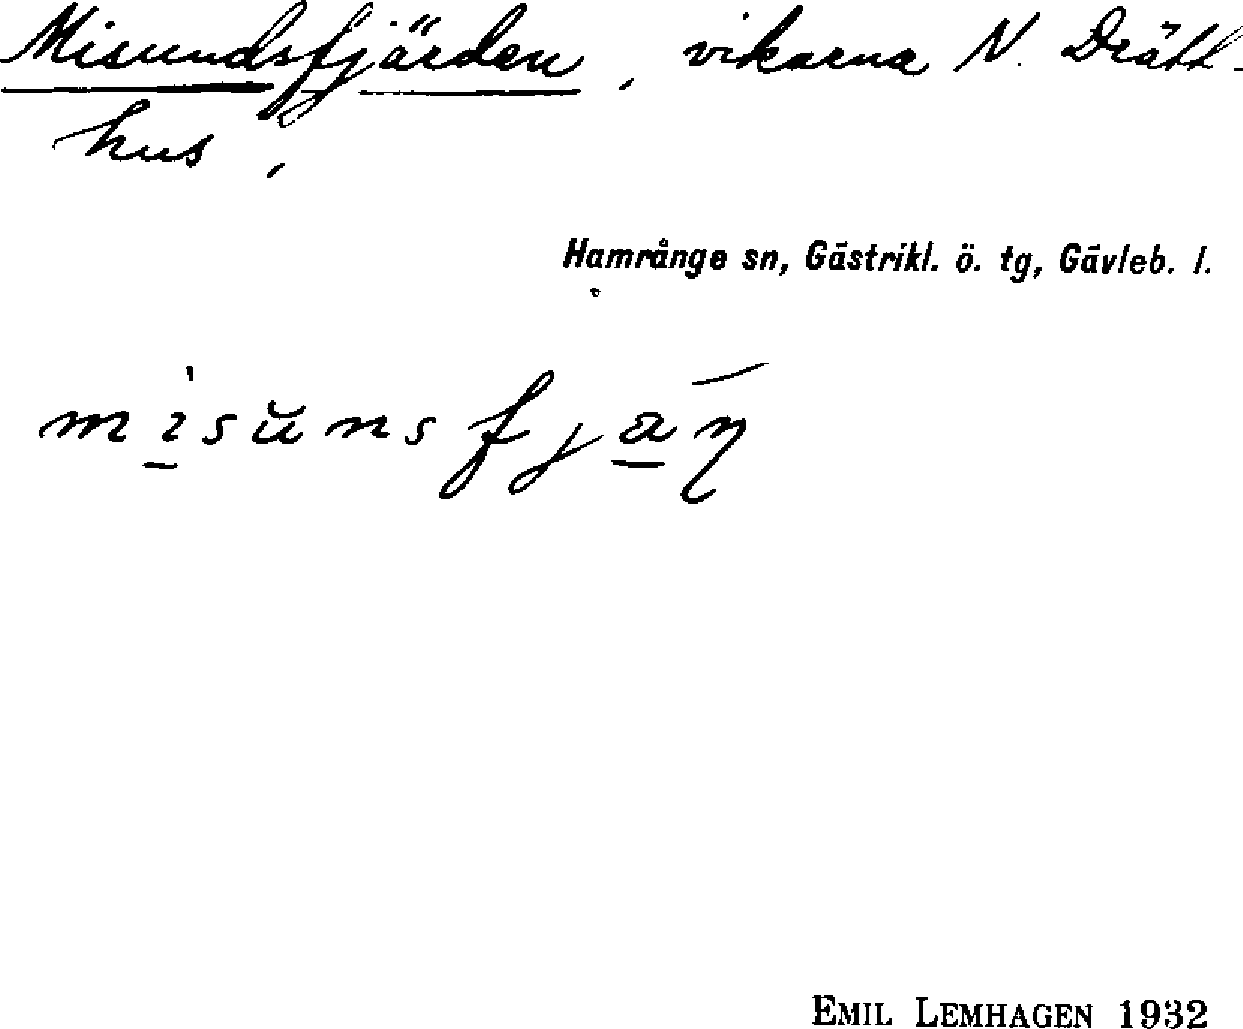 Misundsfjärden, vikarna N. Drätt-
hus,
Hamrånge sn, Gästrikl. ö. tg, Gävleb. l.
misŭnsfjaṇ
EMIL LEMHAGEN 1932